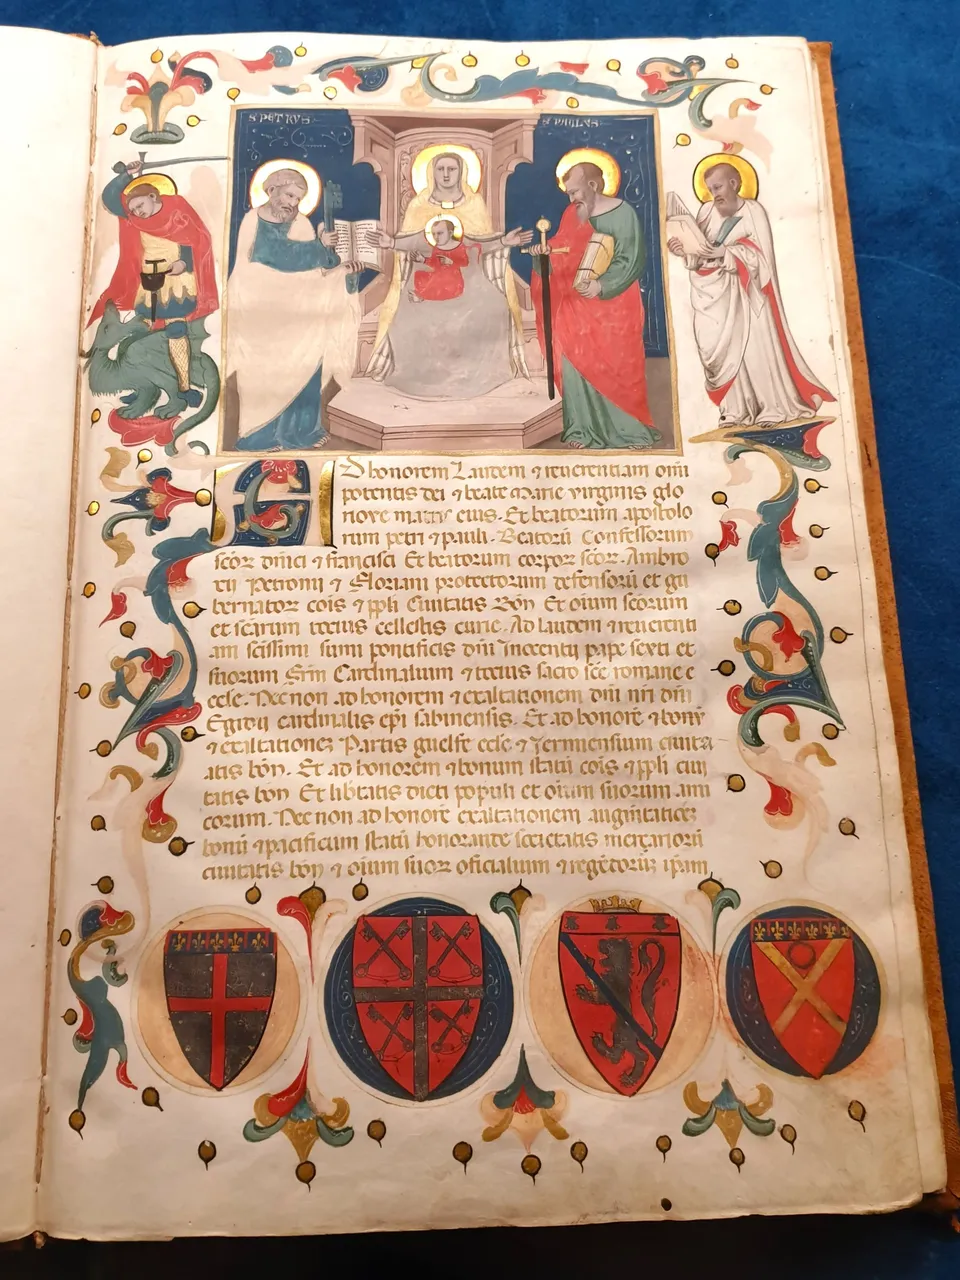 S PETRVS
S PAVLVS
D honorem Laudem ⁊ reuerentiam omi
potentis dei ⁊ beate Marie virginis glo
riose matris eius. Et beatorum apostolo
rum petri ⁊ pauli. Beatorū Confessorum
scōꝝ dnici ⁊ francisci Et beatorum corpoꝝ scōꝝ. Ambro
xii Petronii ⁊ Floriani protectorum defensorū et gu
bernatoꝝ cois ⁊ ppli Ciuitatis Bōn Et oium scōrum
et scārum totius cellestis curie. Ad laudem ⁊ reuerenti
am scissimi sumi pontificis dn̄i Inocentij pape sexti et
suorum frm Cardinalium ⁊ totius sacro sce romane e
ccle. Nec non ad honorem ⁊ exaltationem dn̄i nri dn̄i
Egidij cardinalis ep̄i sabinensis. Et ad honorē ⁊ bonū
⁊ exaltationeꝫ Partis guelfe eccle ⁊ Jermiensium ciuita
atis bōn. Et ad honorem ⁊ bonum statū cois ⁊ ppli ciui
tatis bōn Et lib̄tatis dicti populi et oium suorum ami
corum. Nec non ad honorē exaltationem augmtatioeꝫ
bonū ⁊ pacificum statū honorande societatis mercatorū
ciuitatis bōn ⁊ oium suoꝝ oficialium ⁊ regētoruꝫ ipam